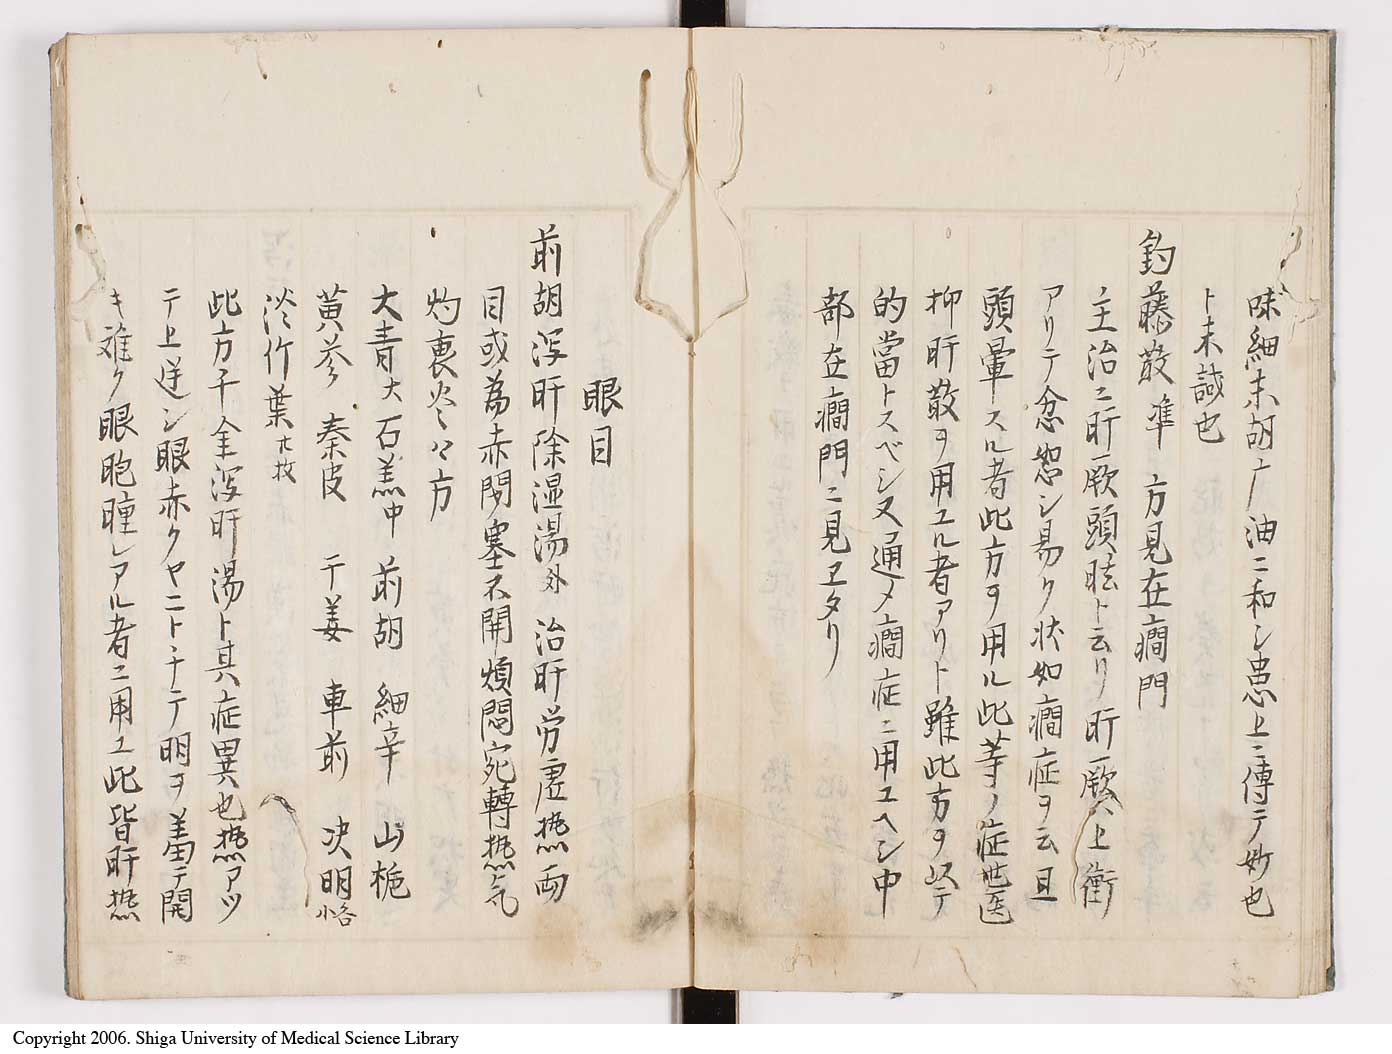 味細末胡广油ニ和シ患上ニ傳テ妙也
ト未誠也
釣藤散準 方見在癇門
主治ニ肝厥頭眩ト云リ肝厥上衝
アリテ忿怒シ易ク状如癇症ヲ云且
頭暈スル者此方ヲ用ル此等ノ症世医
抑肝散ヲ用ユル者アリト雖此方ヲ以テ
的當トスベシ又通メ癇症ニ用ユヘシ中
部在癇門ニ見ヱタリ
眼目
前胡瀉肝除湿湯外 治肝労虚熱両
目或為赤閉塞不開煩悶宛轉熱気
灼裏炎之方
大青大 石羔中 前胡 細辛 山梔
黄芩 秦皮 干姜 車前 决明小 各
淡竹葉廿枚
此方千金瀉肝湯ト其症異也熱アツ
テ上逆シ眼赤クヤニトヂテ明ヲ羞テ開
キ難ク眼胞瞳レアル者ニ用ユ此皆肝熱
Copyright 2006. Shiga University of Medical Science Library